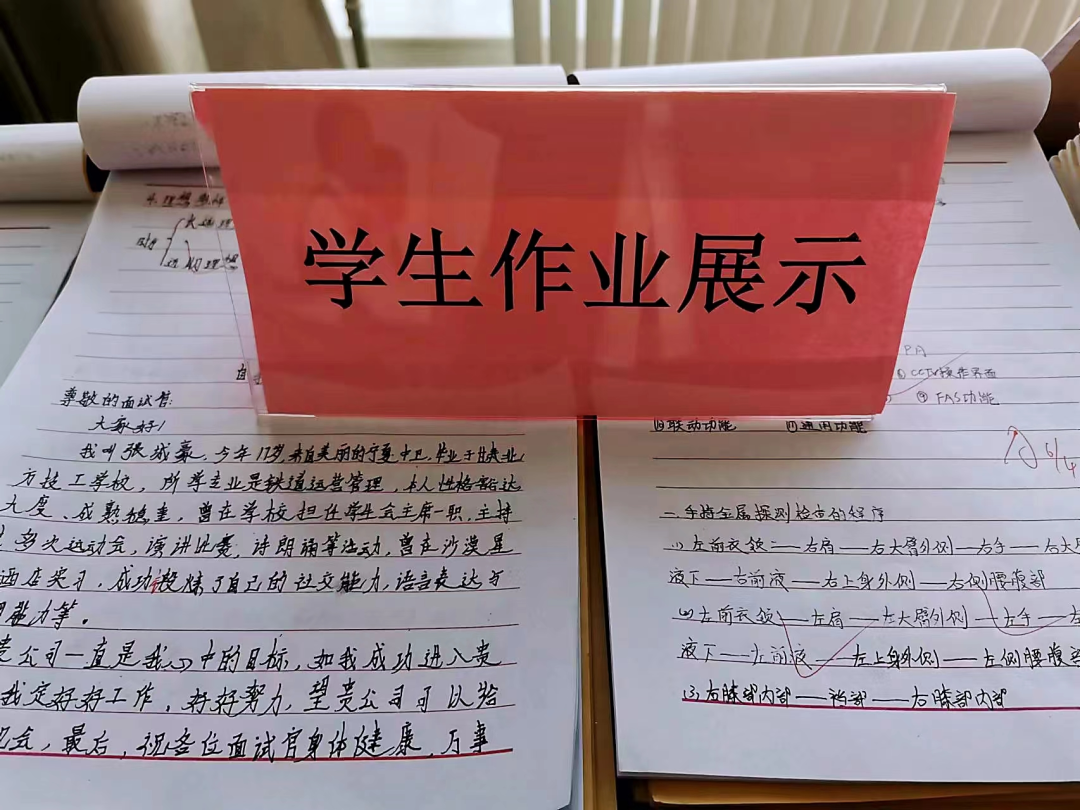 学生作业展示
4.理想
尊敬的面试官:
大家好!
我叫张城豪,今年17岁,来自美丽的宁夏中卫,毕业于
方技工学校,所学专业是铁道运营管理,本人性格豁达
大度、成熟稳重,曾在学校担任学生会主席一职,主持
多次运动会,演讲比赛,诗朗诵等活动,曾在沙漠星
酒店实习,成功锻炼了自己的社交能力,语言表达与
能力等。
贵公司一直是我心中的目标,如我成功进入贵
我定好好工作,好好努力,望贵公司可以给
机会,最后,祝各位面试官身体健康,万事
PA
CCTV操作界面
⑨ FAS功能
联动功能
通用功能
6/4
一.手持金属探测检查的程序
(1)左前衣领——右肩——右大臂外侧——右手——右大
液下——右前液——右上身外侧——右侧腰腹部
(2)左前衣领——左肩——左大臂外侧——左手——左
液下——左前液——左上身外侧——左侧腰腹部
(3)右膝部内部——裆部——右膝部内部